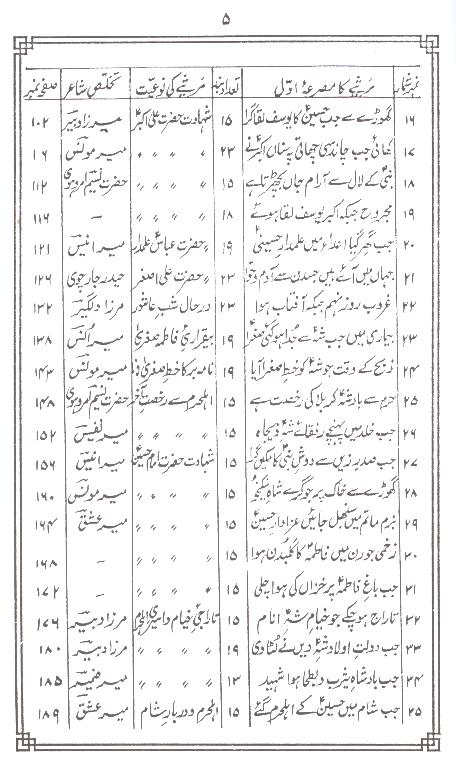 ۵
نمبر شمار مرثیے کا مصرعۂ اوّل تعداد بند مرثیے کی نوعیت تخلص شاعر صفحہ نمبر
۱۶ گھوڑے سے جب حسینؑ کا یوسف لقا گرا ۱۵ شہادت حضرت علی اکبرؑ میرزا دبیر ۱۰۲
۱۷ کھائی جب چاند سی چھاتی پہ سناں اکبر نے ۲۳ 〃 〃 〃 میر مونس ۱۰۶
۱۸ نبیؐ کے لال سے آرام جاں بچھڑتا ہے ۱۵ 〃 〃 〃 حضرت نسیم امروہوی ۱۱۲
۱۹ مجروح جبکہ اکبر یوسف لقا ہوئے ۱۸ 〃 〃 〃 – ۱۱۶
۲۰ جب گھر گیا اعداء میں علمدار حسینی ۱۹ 〃 حضرت عباس علمدار میر انیس ۱۲۱
۲۱ جہاں میں آئے ہیں جس دن سے آدم و حوا ۲۳ 〃 حضرت علی اصغر حیدر جارچوی ۱۲۶
۲۲ غروب روز نہم جبکہ آفتاب ہوا ۲۳ در حال شب عاشور مرزا دلگیر ۱۳۲
۲۳ بیماری میں جب شہؑ سے جدا ہو گئی صغراؑ ۱۹ بیقراری فاطمہ صغریٰ میر انس ۱۳۸
۲۴ ذبح کے وقت جو شہؑ کو خط صغرا آیا ۱۹ نامہ بر کا خط صغریٰ میر مونس ۱۴۳
۲۵ حرم سے بادشہ کربلا کی رخصت ہے ۱۵ اہلحرم سے رخصت آخر حضرت نسیم امروہوی ۱۴۸
۲۶ جب خلد میں پہنچے رفقائے شہ ذیجاہ ۱۵ 〃 〃 〃 〃 میر نفیس ۱۵۲
۲۷ جب صدر زیں سے دوش نبیؐ کا مکیں گرا ۱۵ شہادت حضرت امام حسینؑ میر انیس ۱۵۶
۲۸ گھوڑے سے خاک پر جو گرے شاہ ۱۵ 〃 〃 〃 میر مونس ۱۶۰
۲۹ بزم ماتم میں سنبھل جائیں عزادار حسینؑ ۱۵ 〃 〃 〃 میر عشق ۱۶۴
۳۰ زخمی جو رن میں فاطمہؑ کا گلبدن ہوا ۱۵ 〃 〃 〃 – ۱۶۸
۳۱ جب باغ فاطمہؑ پر خزاں کی ہوا چلی ۱۵ 〃 〃 〃 – ۱۷۲
۳۲ تاراج ہو چکے جو خیام شہ انام ۱۵ تاراجی خیام و اسیری اہلحرم مرزا دبیر ۱۷۶
۳۳ جب دولت اولاد شہ دیں نے لٹا دی ۱۹ 〃 〃 〃 مرزا دبیر ۱۸۰
۳۴ جب بادشاہ یثرب و بطحا ہوا شہید ۱۳ 〃 〃 〃 میر ضمیر ۱۸۵
۳۵ جب شام میں حسینؑ کے اہلحرم گئے ۱۵ اہلحرم و دربار شام میر عشق ۱۸۹